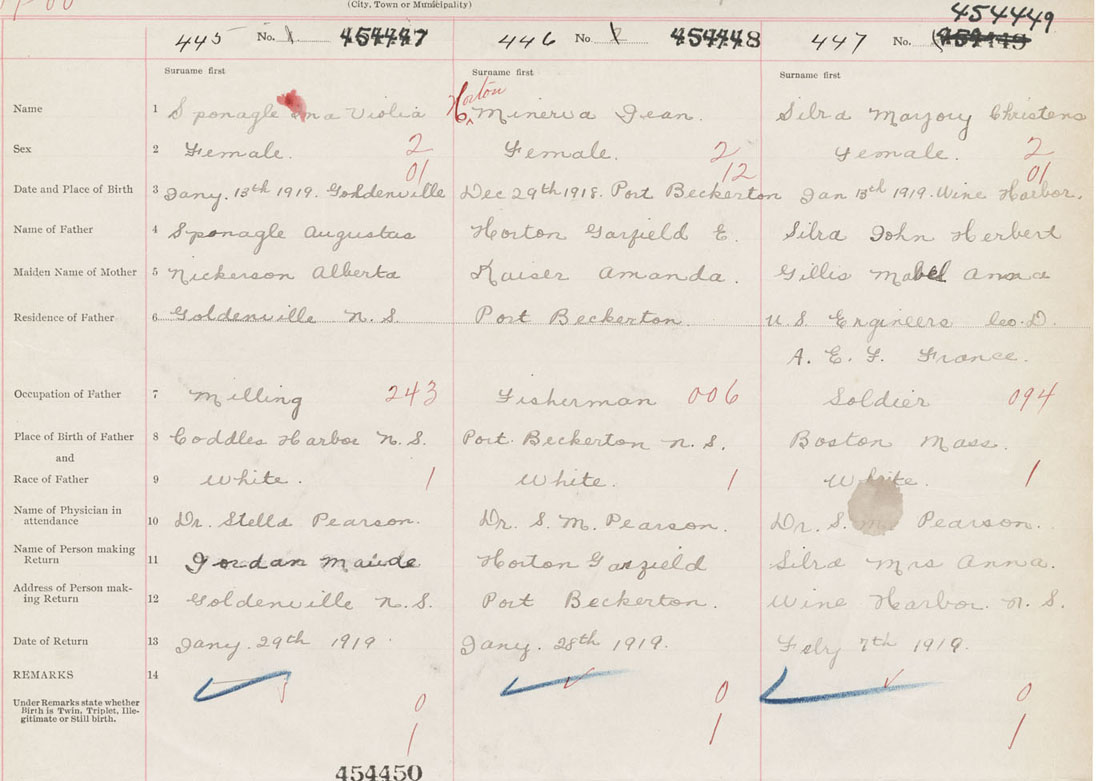 (City, Town or Municipality)
454449
445 No. 1 454447 446 No. 1 454448 447 No.
Surname first Surname first Surname first
Horton
Name 1 Sponagle Violia Minerva Jean. Silva Marjory Christena
Sex 2 Female. 2 Female. 2 Female. 2
01 12 01
Date and Place of Birth 3 Jany. 13th 1919. Goldenville Dec 29th 1918. Port Beckerton Jan 13th 1919. Wine Harbor.
Name of Father 4 Sponagle Augustas Horton Garfield E. Silva John Herbert
Maiden Name of Mother 5 Nickerson Alberta Kaiser Amanda. Gillis Mabel Anna
Residence of Father 6 Goldenville N.S. Port Beckerton. U.S. Engineers Co. D.
A. E. F. France.
Occupation of Father 7 Milling 243 Fisherman 006 Soldier 094
Place of Birth of Father 8 Coddles Harbor N.S. Port Beckerton N.S. Boston Mass.
and
Race of Father 9 White. 1 White. 1 White. 1
Name of Physician in
attendance 10 Dr. Stella Pearson. Dr. S. M. Pearson. Dr. S. M. Pearson.
Name of Person making
Return 11 Jordan Maude Horton Garfield Silva Mrs Anna.
Address of Person mak-
ing Return 12 Goldenville N.S. Port Beckerton. Wine Harbor. N.S.
Date of Return 13 Jany. 29th 1919. Jany. 28th 1919. Feby 7th 1919.
REMARKS 14
Under Remarks state whether 0 0 0
Birth is Twin, Triplet, Ille-
gitimate or Still birth. 1 1 1
454450